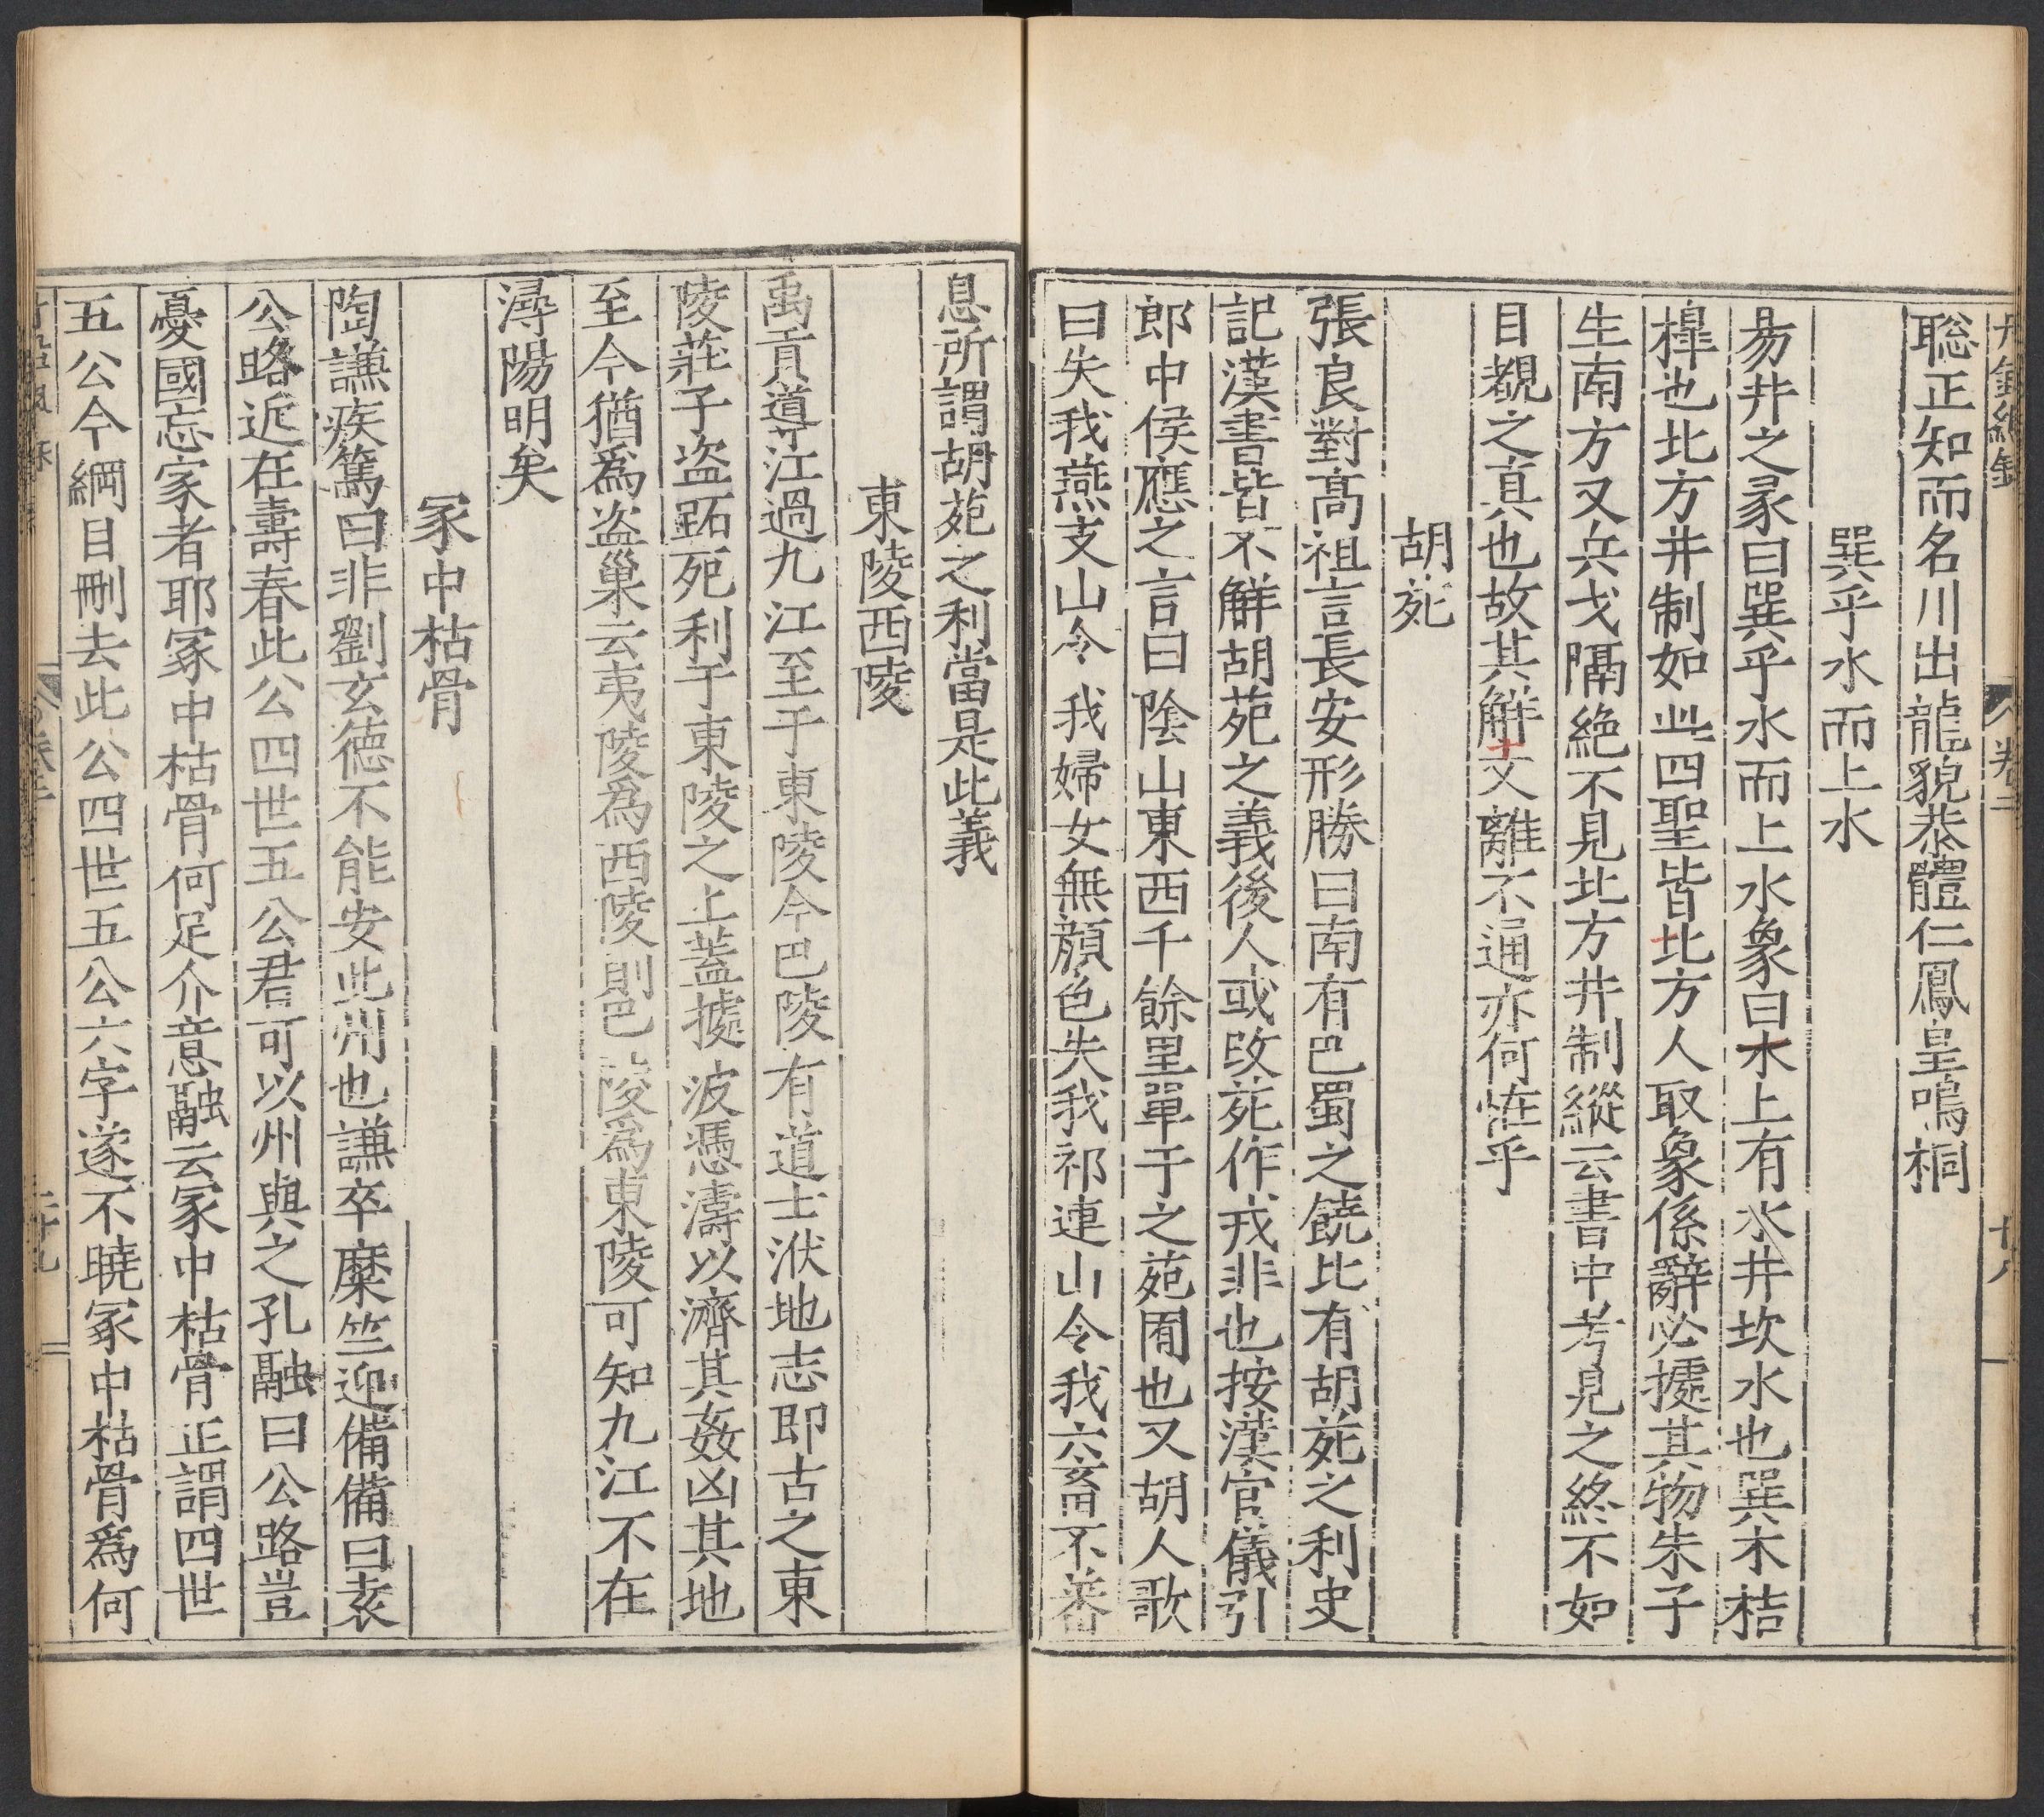 丹鉛總錄 卷二 廿八
聡正知而名川出龍貌恭體仁鳳皇鳴桐
巽乎水而上水
易井之彖曰巽乎水而上水象曰木上有水井坎水也巽木桔
槹也北方井制如此四聖皆北方人取象係辭必㨿其物朱子
生南方又兵戈隔絶不見北方井制縱云書中考見之終不如
目覩之真也故其解文離不通亦何怪乎
胡苑
張良對髙祖言長安形勝曰南有巴蜀之饒北有胡苑之利史
記漢書皆不觧胡苑之義後人或改苑作戎非也按漢官儀引
郎中侯應之言曰陰山東西千餘里單于之苑囿也又胡人歌
曰失我燕支山令我婦女無顔色失我祁連山令我六畜不蕃
息所謂胡苑之利當是此義
東陵西陵
禹貢道江過九江至于東陵今巴陵有道士洑地志即古之東
陵莊子盗跖死利于東陵之上蓋㨿波憑濤以濟其姦凶其地
至今猶為盗巢云夷陵為西陵則巴陵為東陵可知九江不在
潯陽明矣
冢中枯骨
陶謙疾篤曰非劉玄徳不能安此州也謙卒糜竺迎備備曰袁
公路近在壽春此公四世五公君可以州與之孔融曰公路豈
憂國忘家者耶冢中枯骨何足介意融云冢中枯骨正謂四世
五公今綱目刪去此公四世五公六字遂不曉冢中枯骨為何
二十九